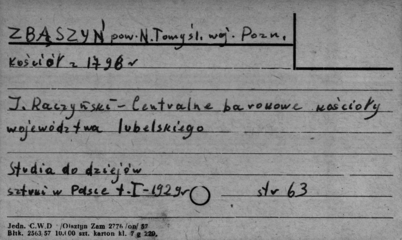 ZBĄSZYŃ pow. N. Tomyśl. woj. Pozn.
Kościół z 1798 r
J. Raczyński - Centralne barokowe kościoły
województwa lubelskiego
Studia do dziejów
sztuki w Polsce t. I - 1929r str 63
Jedn. C.W.D Olsztyn Zam 2776
Błtk. 2563.57 10.000 szt. karton kl. 7 g 220.